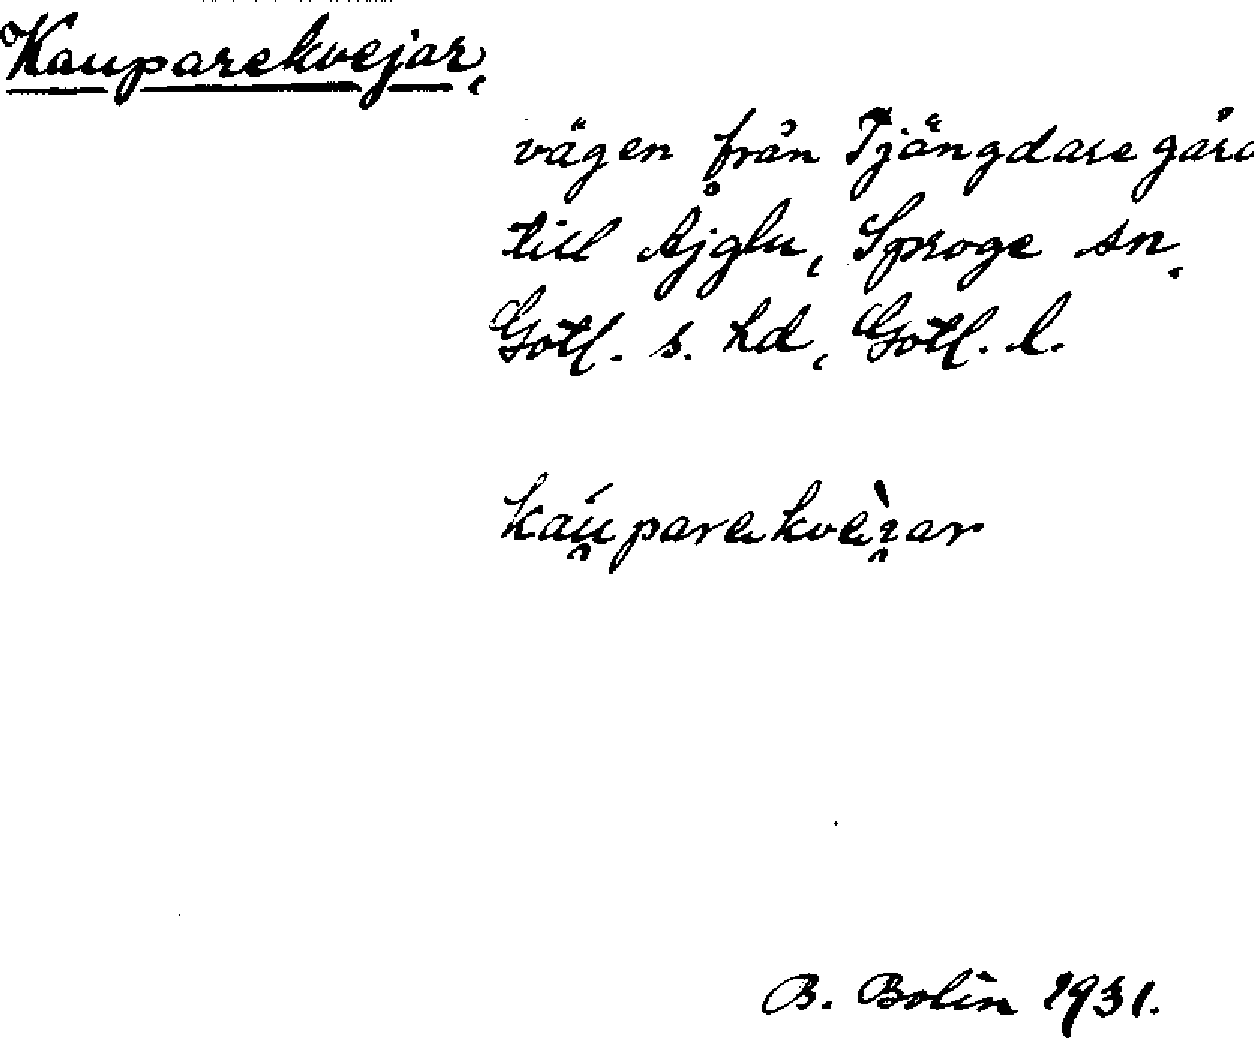 Kauparekvejar,
vägen från Tjängdare gård
till Åjglu, Sproge sn,
Gotl. s. hd, Gotl. l.
B. Bolin 1931.